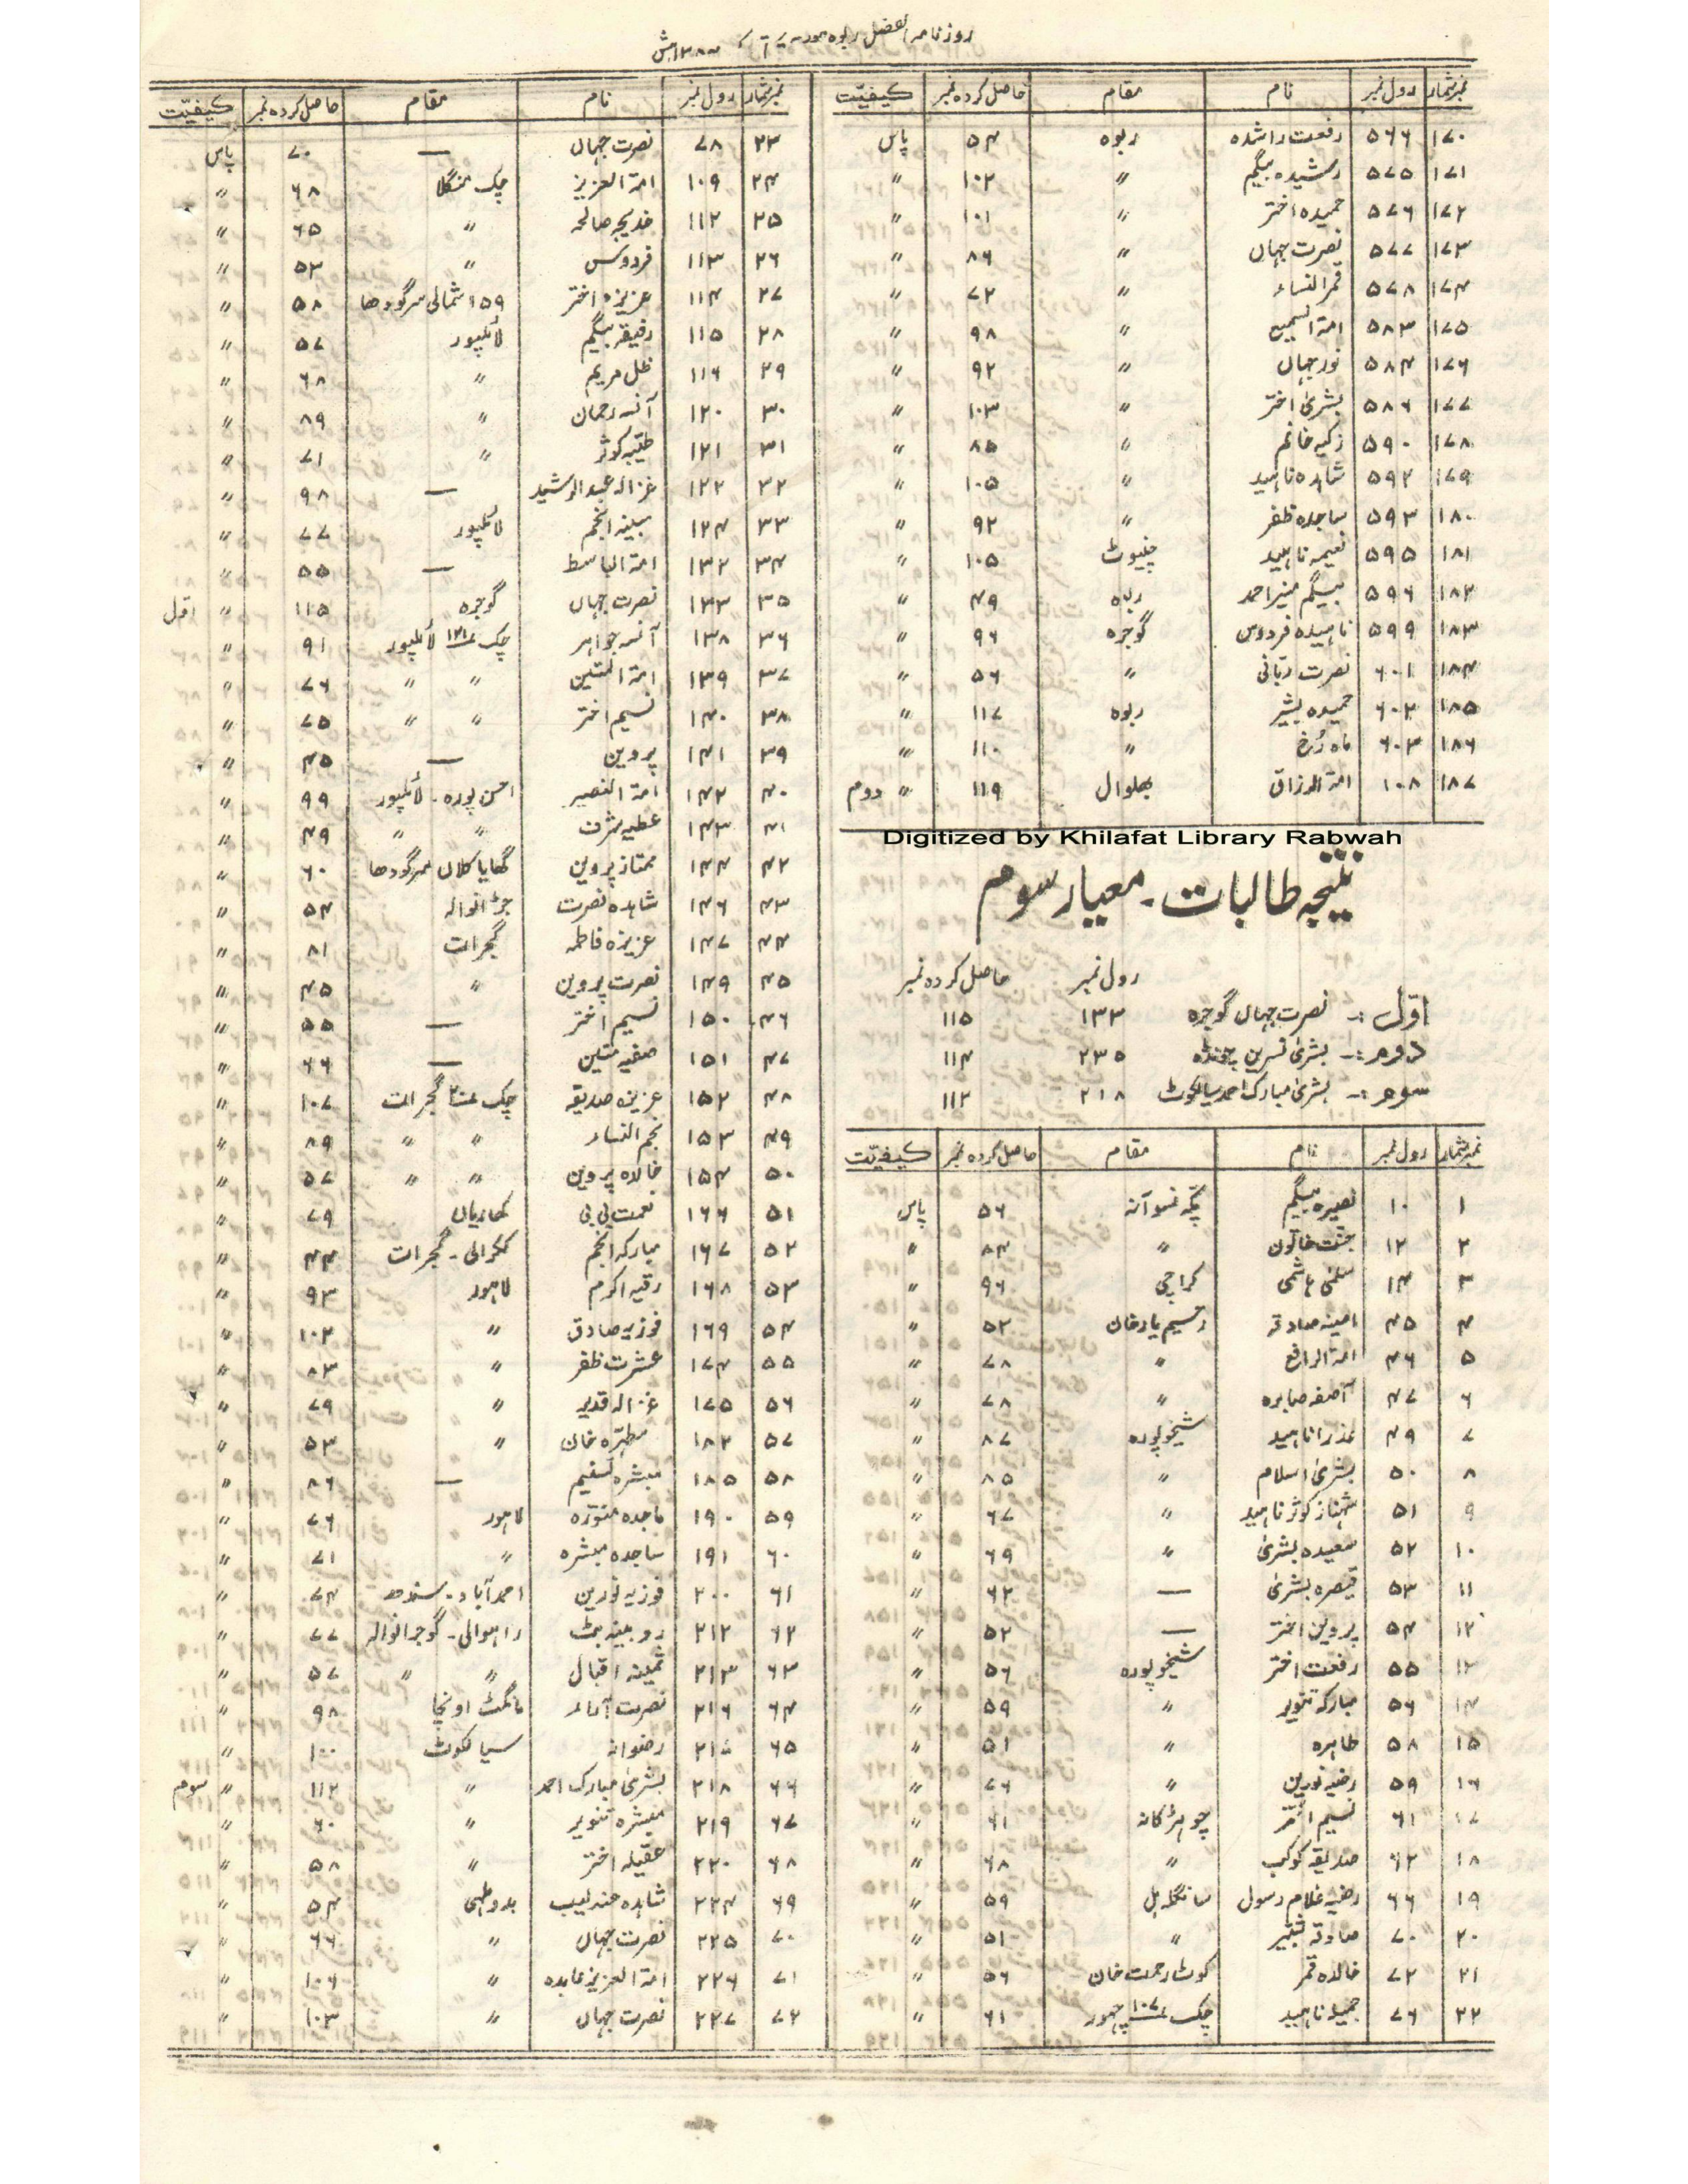 روزنامہ الفضل ربوہ مورخہ
نمبر شمار رول نمبر نام مقام حاصل کردہ نمبر کیفیت
۱۷۰ ۵۶۶ رفعت راشدہ ربوہ ۵۴ پاس
۱۷۱ ۵۷۵ رشیدہ بیگم 〃 ۱۰۲ 〃
۱۷۲ ۵۷۶ حمیدہ اختر 〃 ۱۰۱ 〃
۱۷۳ ۵۷۷ نصرت جہاں 〃 ۸۶ 〃
۱۷۴ ۵۷۸ قمر النساء 〃 ۷۲ 〃
۱۷۵ ۵۸۳ امۃ السمیع 〃 ۹۸ 〃
۱۷۶ ۵۸۴ نور جہاں 〃 ۹۲ 〃
۱۷۷ ۵۸۶ بشریٰ اختر 〃 ۱۰۳ 〃
۱۷۸ ۵۹۰ زکیہ خانم 〃 ۸۵ 〃
۱۷۹ ۵۹۲ شاہدہ ناہید 〃 ۱۰۵ 〃
۱۸۰ ۵۹۳ ساجدہ ظفر 〃 ۹۲ 〃
۱۸۱ ۵۹۵ نعیمہ ناہید چنیوٹ ۱۰۵ 〃
۱۸۲ ۵۹۶ بیگم منیر احمد ربوہ ۴۹ 〃
۱۸۳ ۵۹۹ ناہیدہ فردوس گوجرہ ۹۶ 〃
۱۸۴ ۶۰۱ نصرت ربّانی 〃 ۵۶ 〃
۱۸۵ ۶۰۲ حمیدہ بشیر ربوہ ۱۱۷ 〃
۱۸۶ ۶۰۳ ماہ رُخ 〃 ۱۱۰ 〃
۱۸۷ ۱۰۸ امۃ الرزاق بھلوال ۱۱۹ 〃 دوم
Digitized by Khilafat Library Rabwah
نتیجہ طالبات۔ معیار سوم
رول نمبر حاصل کردہ نمبر
اوّل :۔ نصرت جہاں گوجرہ ۱۳۳ ۱۱۵
دوم :۔ بشریٰ نسرین چونڈہ ۲۳۵ ۱۱۴
سوم :۔ بشریٰ مبارک احمد سیالکوٹ ۲۱۸ ۱۱۲
نمبر شمار رول نمبر نام مقام حاصل کردہ نمبر کیفیت
۱ ۱۰ نصیرہ بیگم ۵۶ پاس
۲ ۱۲ جنت خاتون 〃 ۸۴ 〃
۳ ۱۴ سلمیٰ ہاشمی کراچی ۹۶ 〃
۴ ۴۵ امینہ صادقہ رحیم یار خان ۵۲ 〃
۵ ۴۶ امۃ الرافع 〃 ۷۸ 〃
۶ ۴۷ آصفہ صابرہ 〃 ۷۸ 〃
۷ ۴۹ عذرا ناہید شیخوپورہ ۸۷ 〃
۸ ۵۰ بشریٰ اسلام 〃 ۸۵ 〃
۹ ۵۱ شہناز کوثر ناہید 〃 ۶۷ 〃
۱۰ ۵۲ سعیدہ بشریٰ 〃 ۶۹ 〃
۱۱ ۵۳ قیصرہ بشریٰ — ۶۲ 〃
۱۲ ۵۴ پروین اختر — ۵۲ 〃
۱۳ ۵۵ رفعت اختر شیخوپورہ ۵۶ 〃
۱۴ ۵۶ مبارکہ تنویر 〃 ۵۹ 〃
۱۵ ۵۸ طاہرہ 〃 ۵۱ 〃
۱۶ ۵۹ رضیہ نورین 〃 ۷۶ 〃
۱۷ ۶۱ نسیم اختر چوہڑکانہ ۶۱ 〃
۱۸ ۶۲ صدیقہ کوکب 〃 ۶۸ 〃
۱۹ ۶۶ رضیہ غلام رسول سانگلہ ہل ۵۹ 〃
۲۰ ۷۰ صادقہ شبیر 〃 ۵۱ 〃
۲۱ ۷۲ خالدہ قمر کوٹ رحمت خان ۵۶ 〃
۲۲ ۷۶ جمیلہ ناہید چک ۱۰۷ چہور ۶۱ 〃
نمبر شمار رول نمبر نام مقام حاصل کردہ نمبر کیفیت
۲۳ ۷۸ نصرت جہاں — ۷۰ پاس
۲۴ ۱۰۹ امۃ العزیز چک منگلا ۶۸ 〃
۲۵ ۱۱۲ خدیجہ صالحہ 〃 ۶۵ 〃
۲۶ ۱۱۳ فردوس 〃 ۵۳ 〃
۲۷ ۱۱۴ عزیزہ اختر ۱۵۹ شمالی سرگودھا ۵۸ 〃
۲۸ ۱۱۵ رفیقہ بیگم لائلپور ۵۷ 〃
۲۹ ۱۱۶ ظل مریم 〃 ۶۸ 〃
۳۰ ۱۲۰ آنسہ رحمان 〃 ۸۹ 〃
۳۱ ۱۲۱ طیّبہ کوثر 〃 ۷۱ 〃
۳۲ ۱۲۲ غزالہ عبدالرشید — ۹۸ 〃
۳۳ ۱۲۴ مبینہ انجم لائلپور ۷۷ 〃
۳۴ ۱۳۲ امۃ الباسط — ۵۵ 〃
۳۵ ۱۳۳ نصرت جہاں گوجرہ ۱۱۵ 〃 اوّل
۳۶ ۱۳۸ آنسہ جواہر چک ۱۲۱ لائلپور ۹۱ 〃
۳۷ ۱۳۹ امۃ المتین 〃 〃 ۷۶ 〃
۳۸ ۱۴۰ نسیم اختر 〃 〃 ۷۵ 〃
۳۹ ۱۴۱ پروین — ۴۵ 〃
۴۰ ۱۴۲ امۃ النصیر احسن پورہ۔ لائلپور ۹۹ 〃
۴۱ ۱۴۳ عطیہ شرف 〃 〃 ۴۹ 〃
۴۲ ۱۴۴ ممتاز پروین گھایا کلاں سرگودھا ۶۰ 〃
۴۳ ۱۴۶ شاہدہ نصرت جڑانوالہ ۵۴ 〃
۴۴ ۱۴۷ عزیزہ فاطمہ گجرات ۸۱ 〃
۴۵ ۱۴۹ نصرت پروین 〃 ۴۵ 〃
۴۶ ۱۵۰ نسیم اختر — ۵۵ 〃
۴۷ ۱۵۱ صفیہ متین — ۶۶ 〃
۴۸ ۱۵۲ عزیزہ صدیقہ چک ۲۰ گجرات ۱۰۷ 〃
۴۹ ۱۵۳ نجم النساء 〃 〃 ۸۹ 〃
۵۰ ۱۵۴ خالدہ پروین 〃 〃 ۵۷ 〃
۵۱ ۱۶۶ نعمت بی بی کھاریاں ۷۹ 〃
۵۲ ۱۶۷ مبارکہ انجم ککرالی۔ گجرات ۴۴ 〃
۵۳ ۱۶۸ رقیہ اکرم لاہور ۹۳ 〃
۵۴ ۱۶۹ فوزیہ صادق 〃 ۱۰۲ 〃
۵۵ ۱۷۴ عشرت ظفر 〃 ۸۳ 〃
۵۶ ۱۷۵ غزالہ قدیر 〃 ۷۹ 〃
۵۷ ۱۸۲ مطہرہ خان 〃 ۵۳ 〃
۵۸ ۱۸۵ مبشرہ تسنیم — ۸۶ 〃
۵۹ ۱۹۰ ماجدہ منوّرہ لاہور ۷۶ 〃
۶۰ ۱۹۱ ساجدہ مبشرہ 〃 ۷۱ 〃
۶۱ ۲۰۰ فوزیہ نورین احمد آباد۔ سندھ ۷۴ 〃
۶۲ ۲۱۲ روبینہ بٹ راہوالی۔ گوجرانوالہ ۷۷ 〃
۶۳ ۲۱۳ ثمینہ اقبال 〃 〃 ۵۷ 〃
۶۴ ۲۱۶ نصرت آراء مانگٹ اونچا ۹۸ 〃
۶۵ ۲۱۷ رضوانہ سیالکوٹ ۱۰۰ 〃
۶۶ ۲۱۸ بشریٰ مبارک احمد 〃 ۱۱۲ 〃 سوم
۶۷ ۲۱۹ مبشرہ تنویر 〃 ۶۰ 〃
۶۸ ۲۲۰ عقیلہ اختر 〃 ۵۸ 〃
۶۹ ۲۲۴ شاہدہ عندلیب بدوملہی ۵۴ 〃
۷۰ ۲۲۵ نصرت جہاں 〃 ۶۶ 〃
۷۱ ۲۲۶ امۃ العزیز عابدہ 〃 ۱۰۶ 〃
۷۲ ۲۲۷ نصرت جہاں 〃 ۱۰۳ 〃